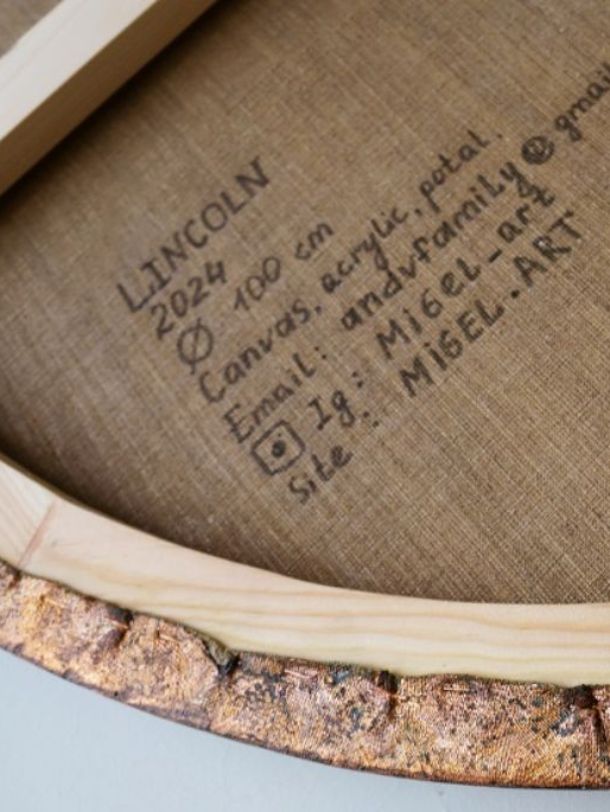 LINCOLN
2024
Ø 100 cm
Canvas, acrylic, potal.
Email: andvfamily@gmail
Ig: MiGEL_art
Site: MiGEL.ART